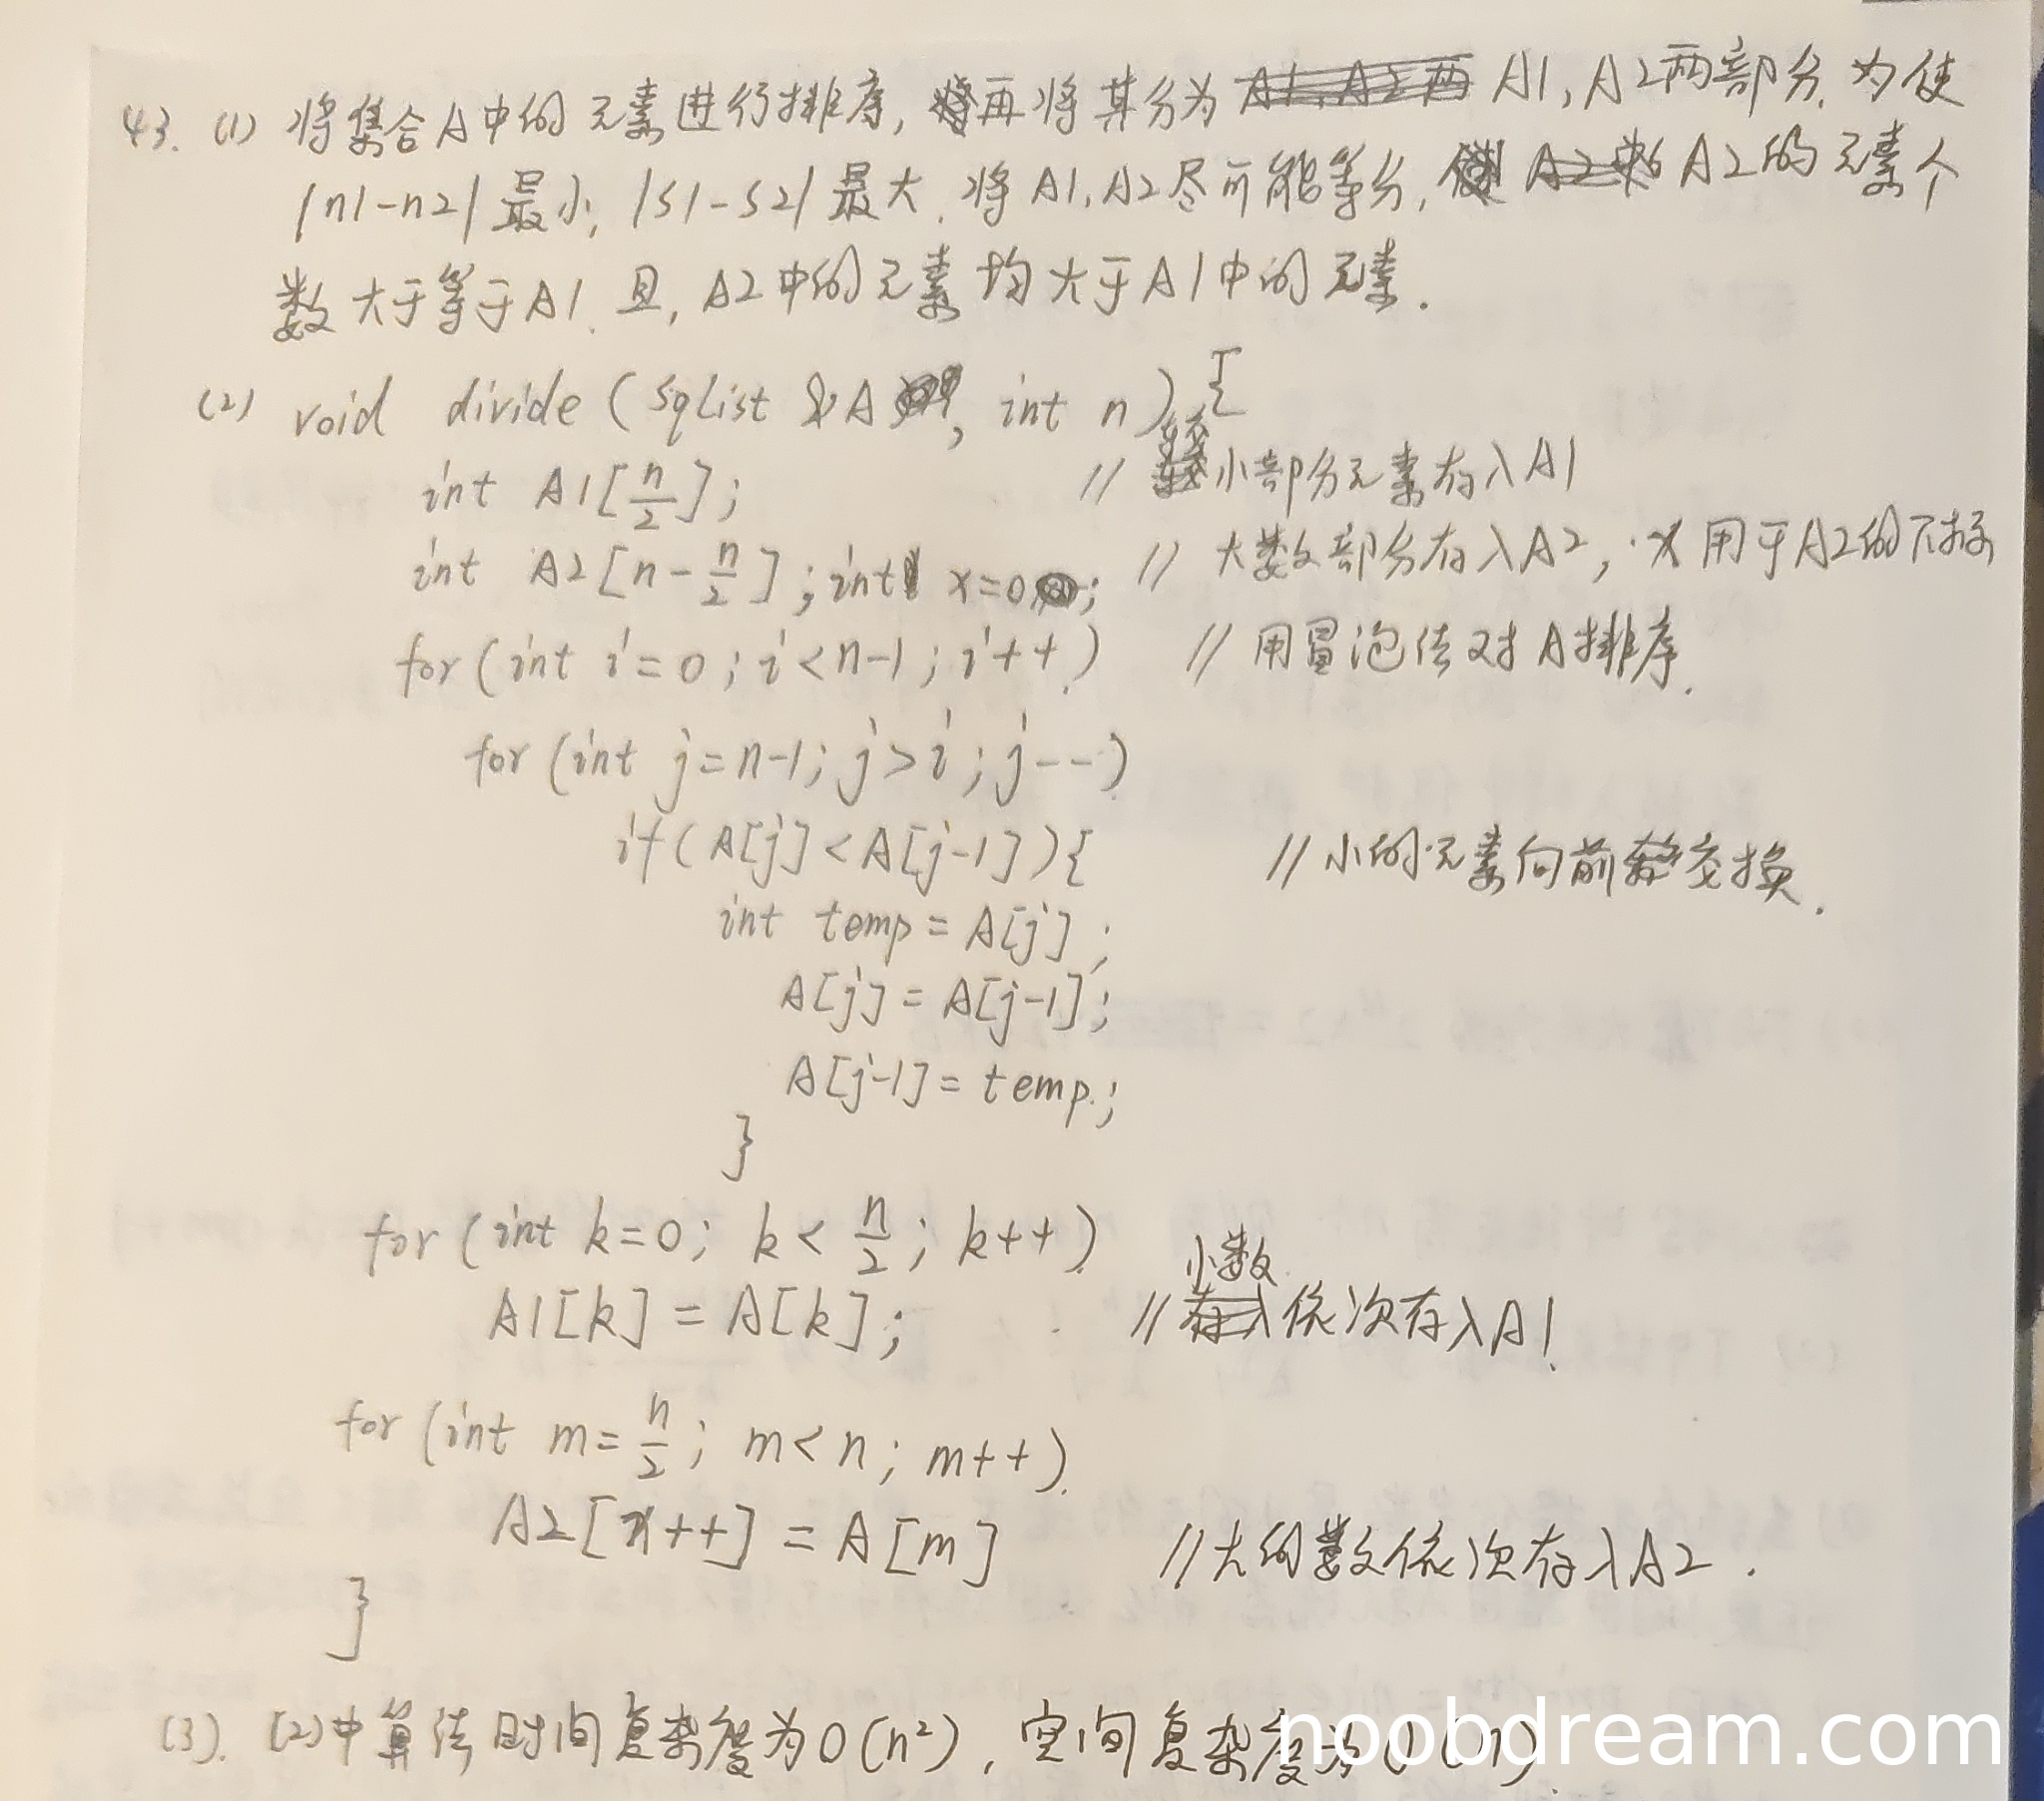 43. (1) 将集合A中的元素进行排序, 再将其分为 A1, A2两部分. 为使
|n1-n2| 最小, |s1-s2| 最大. 将 A1, A2尽可能等分, A2的元素个
数大于等于A1. 且, A2中的元素均大于A1中的元素.
(2) void divide (SqList &A, int n) {
int A1[n/2]; // 较小部分元素存入A1
int A2[n-n/2]; int x=0; // 大数部分存入A2, x用于A2的下标
for(int i=0; i<n-1; i++) // 用冒泡法对A排序.
for(int j=n-1; j>i; j--)
if(A[j]<A[j-1]){ // 小的元素向前交换.
int temp=A[j];
A[j]=A[j-1];
A[j-1]=temp;
}
for (int k=0; k<n/2; k++)
A1[k]=A[k]; // 小数依次存入A1.
for (int m=n/2; m<n; m++)
A2[x++]=A[m] // 大的数依次存入A2.
}
(3). (2)中算法时间复杂度为O(n²), 空间复杂度为O(n).
noobdream.com